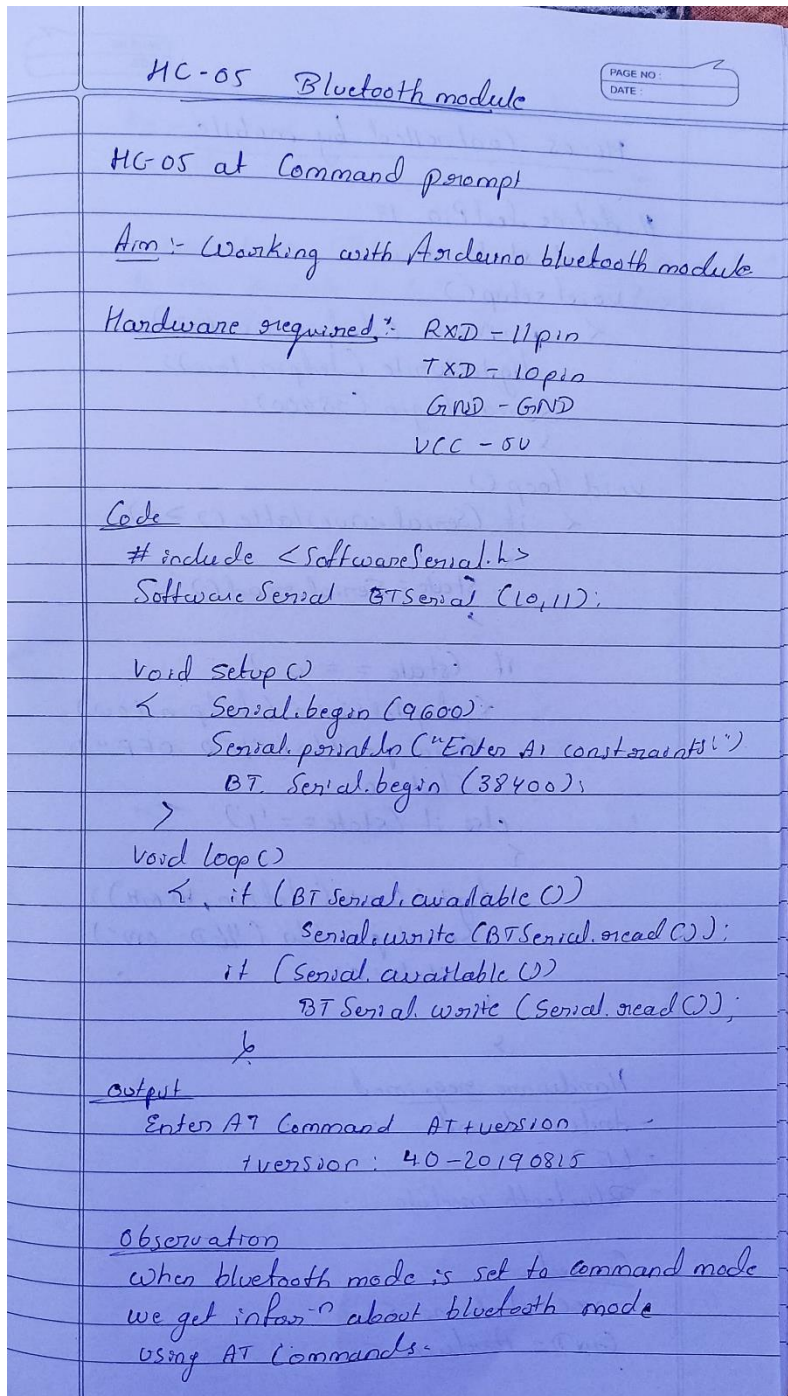 PAGE NO :
DATE :
HC-05 Bluetooth module
HC-05 at Command prompt
Aim :- Working with Arduino bluetooth module
Hardware required :- RXD - 11 pin
TXD - 10 pin
GND - GND
VCC - 5V
Code
# include <SoftwareSerial.h>
Software Serial BTSerial (10,11);
Void setup ()
{ Serial.begin (9600)
Serial.println ("Enter AT constraints:")
BT. Serial.begin (38400);
}
Void loop ()
{ if (BT Serial.available ())
Serial.write (BTSerial.read ());
if (Serial.available ())
BT Serial.write (Serial.read ());
}
Output
Enter AT Command AT+version
+version : 40-20190815
Observation
When bluetooth mode is set to command mode
we get infor-n about bluetooth mode
using AT Commands.